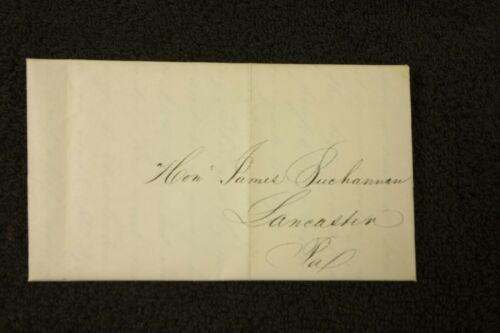 Hon James Buchannan
Lancaster
Pa